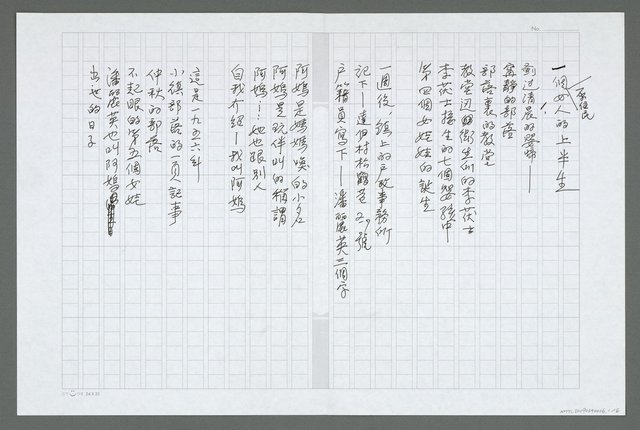 No.
一個原住民女人的上半生
劃过清晨的嬰啼——
寧靜的部落
部落裏的教堂
教堂边衛生所的李茯士
李茯士接生的七個嬰孩中
第四個女娃娃的誕生
一週後，鎮上的戶政事務所
記下—達伯村松鶴巷29號
戶籍員寫下——潘麗英三個字
阿媽是媽媽喚的小名
阿媽是玩伴叫的稱謂
阿媽…她也跟別人
自我介紹—我叫阿媽
這是一九五六年
小徑部落的一頁記事
仲秋的部落
不起眼的第五個女娃
潘麗英也叫阿媽
出世的日子
24 X 25